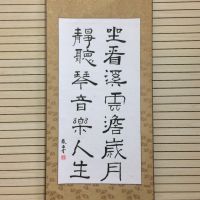 坐看溪雲澹歲月
靜聽琴音樂人生